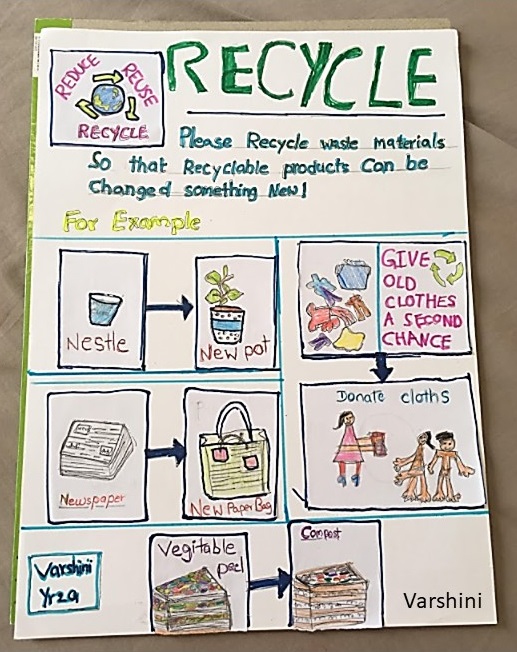 REDUCE
REUSE
RECYCLE
RECYCLE
Please Recycle waste materials
So that Recyclable products Can be
Changed something New!
For Example
Nestle
New pot
GIVE
OLD
CLOTHES
A SECOND
CHANCE
Donate cloths
Newspaper
New Paper Bag
Vegitable
peel
Compost
Varshini
Yr2a
Varshini